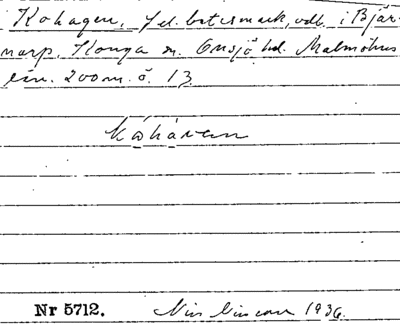 Kohagen, f.d. betesmark, odl. i Bjär-
narp, Konga sn. Onsjö hd. Malmöhus
län. 200 m. ö. 13
kohagen
Nr 5712. Nils 1936.